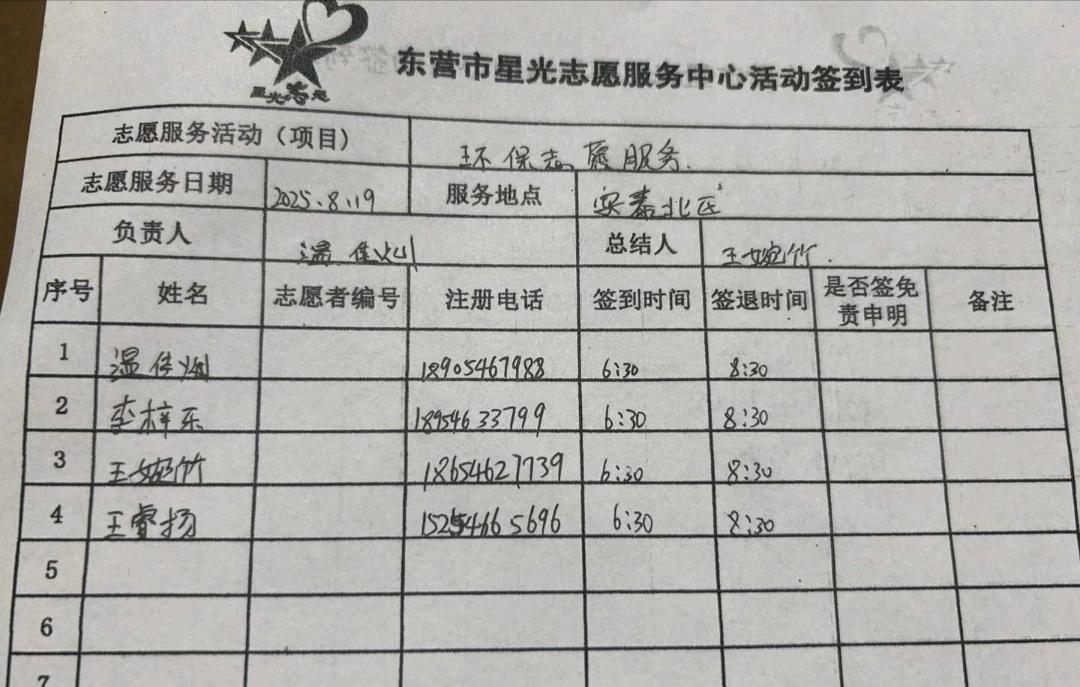 星光志愿
东营市星光志愿服务中心活动签到表
志愿服务活动（项目） 环保志愿服务.
志愿服务日期 2025.8.19 服务地点 安泰北区
负责人 温佳灿 总结人 王婉竹.
序号 姓名 志愿者编号 注册电话 签到时间 签退时间 是否签免责申明 备注
1 温佳灿 18905467988 6:30 8:30
2 李梓乐 18954633799 6:30 8:30
3 王婉竹 18654627739 6:30 8:30
4 王睿扬 15254665696 6:30 8:30
5
6
7